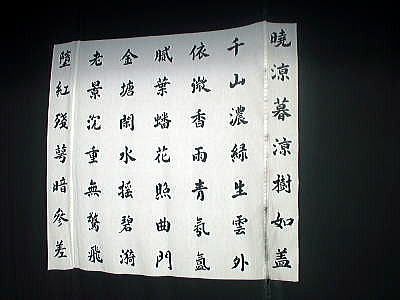 曉涼暮涼樹如盖
千山濃緑生雲外
依微香雨青氛氳
膩葉蟠花照曲門
金塘閑水摇碧漪
老景沈重無驚飛
墮紅殘萼暗參差